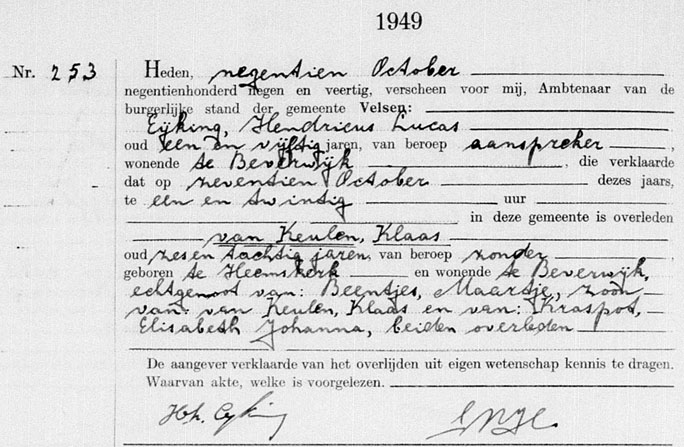 1949
Nr. 253 Heden, negentien October
negentienhonderd negen en veertig, verscheen voor mij, Ambtenaar van de
burgerlijke stand der gemeente Velsen:
Eijking, Hendricus Lucas
oud een en vijftig jaren, van beroep aanspreker ,
wonende te Beverwijk , die verklaarde
dat op zeventien October dezes jaars,
te een en twintig uur
in deze gemeente is overleden
van Keulen, Klaas
oud zes en tachtig jaren, van beroep zonder ,
geboren te Heemskerk en wonende te Beverwijk,
echtgenoot van: Beentjes, Maartje, zoon
van: van Keulen, Klaas en van: Kraspot,
Elisabeth Johanna, beiden overleden
De aangever verklaarde van het overlijden uit eigen wetenschap kennis te dragen.
Waarvan akte, welke is voorgelezen.